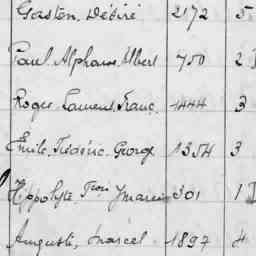 Gaston, Désiré 2172 5
Paul, Alphons, Albert 750 2
Roger, Laurens, Franç. 1444 3
Emile, Frédéric, George 1354 3
Hippolyte Frois 301 1
Auguste, Marcel 1897 4